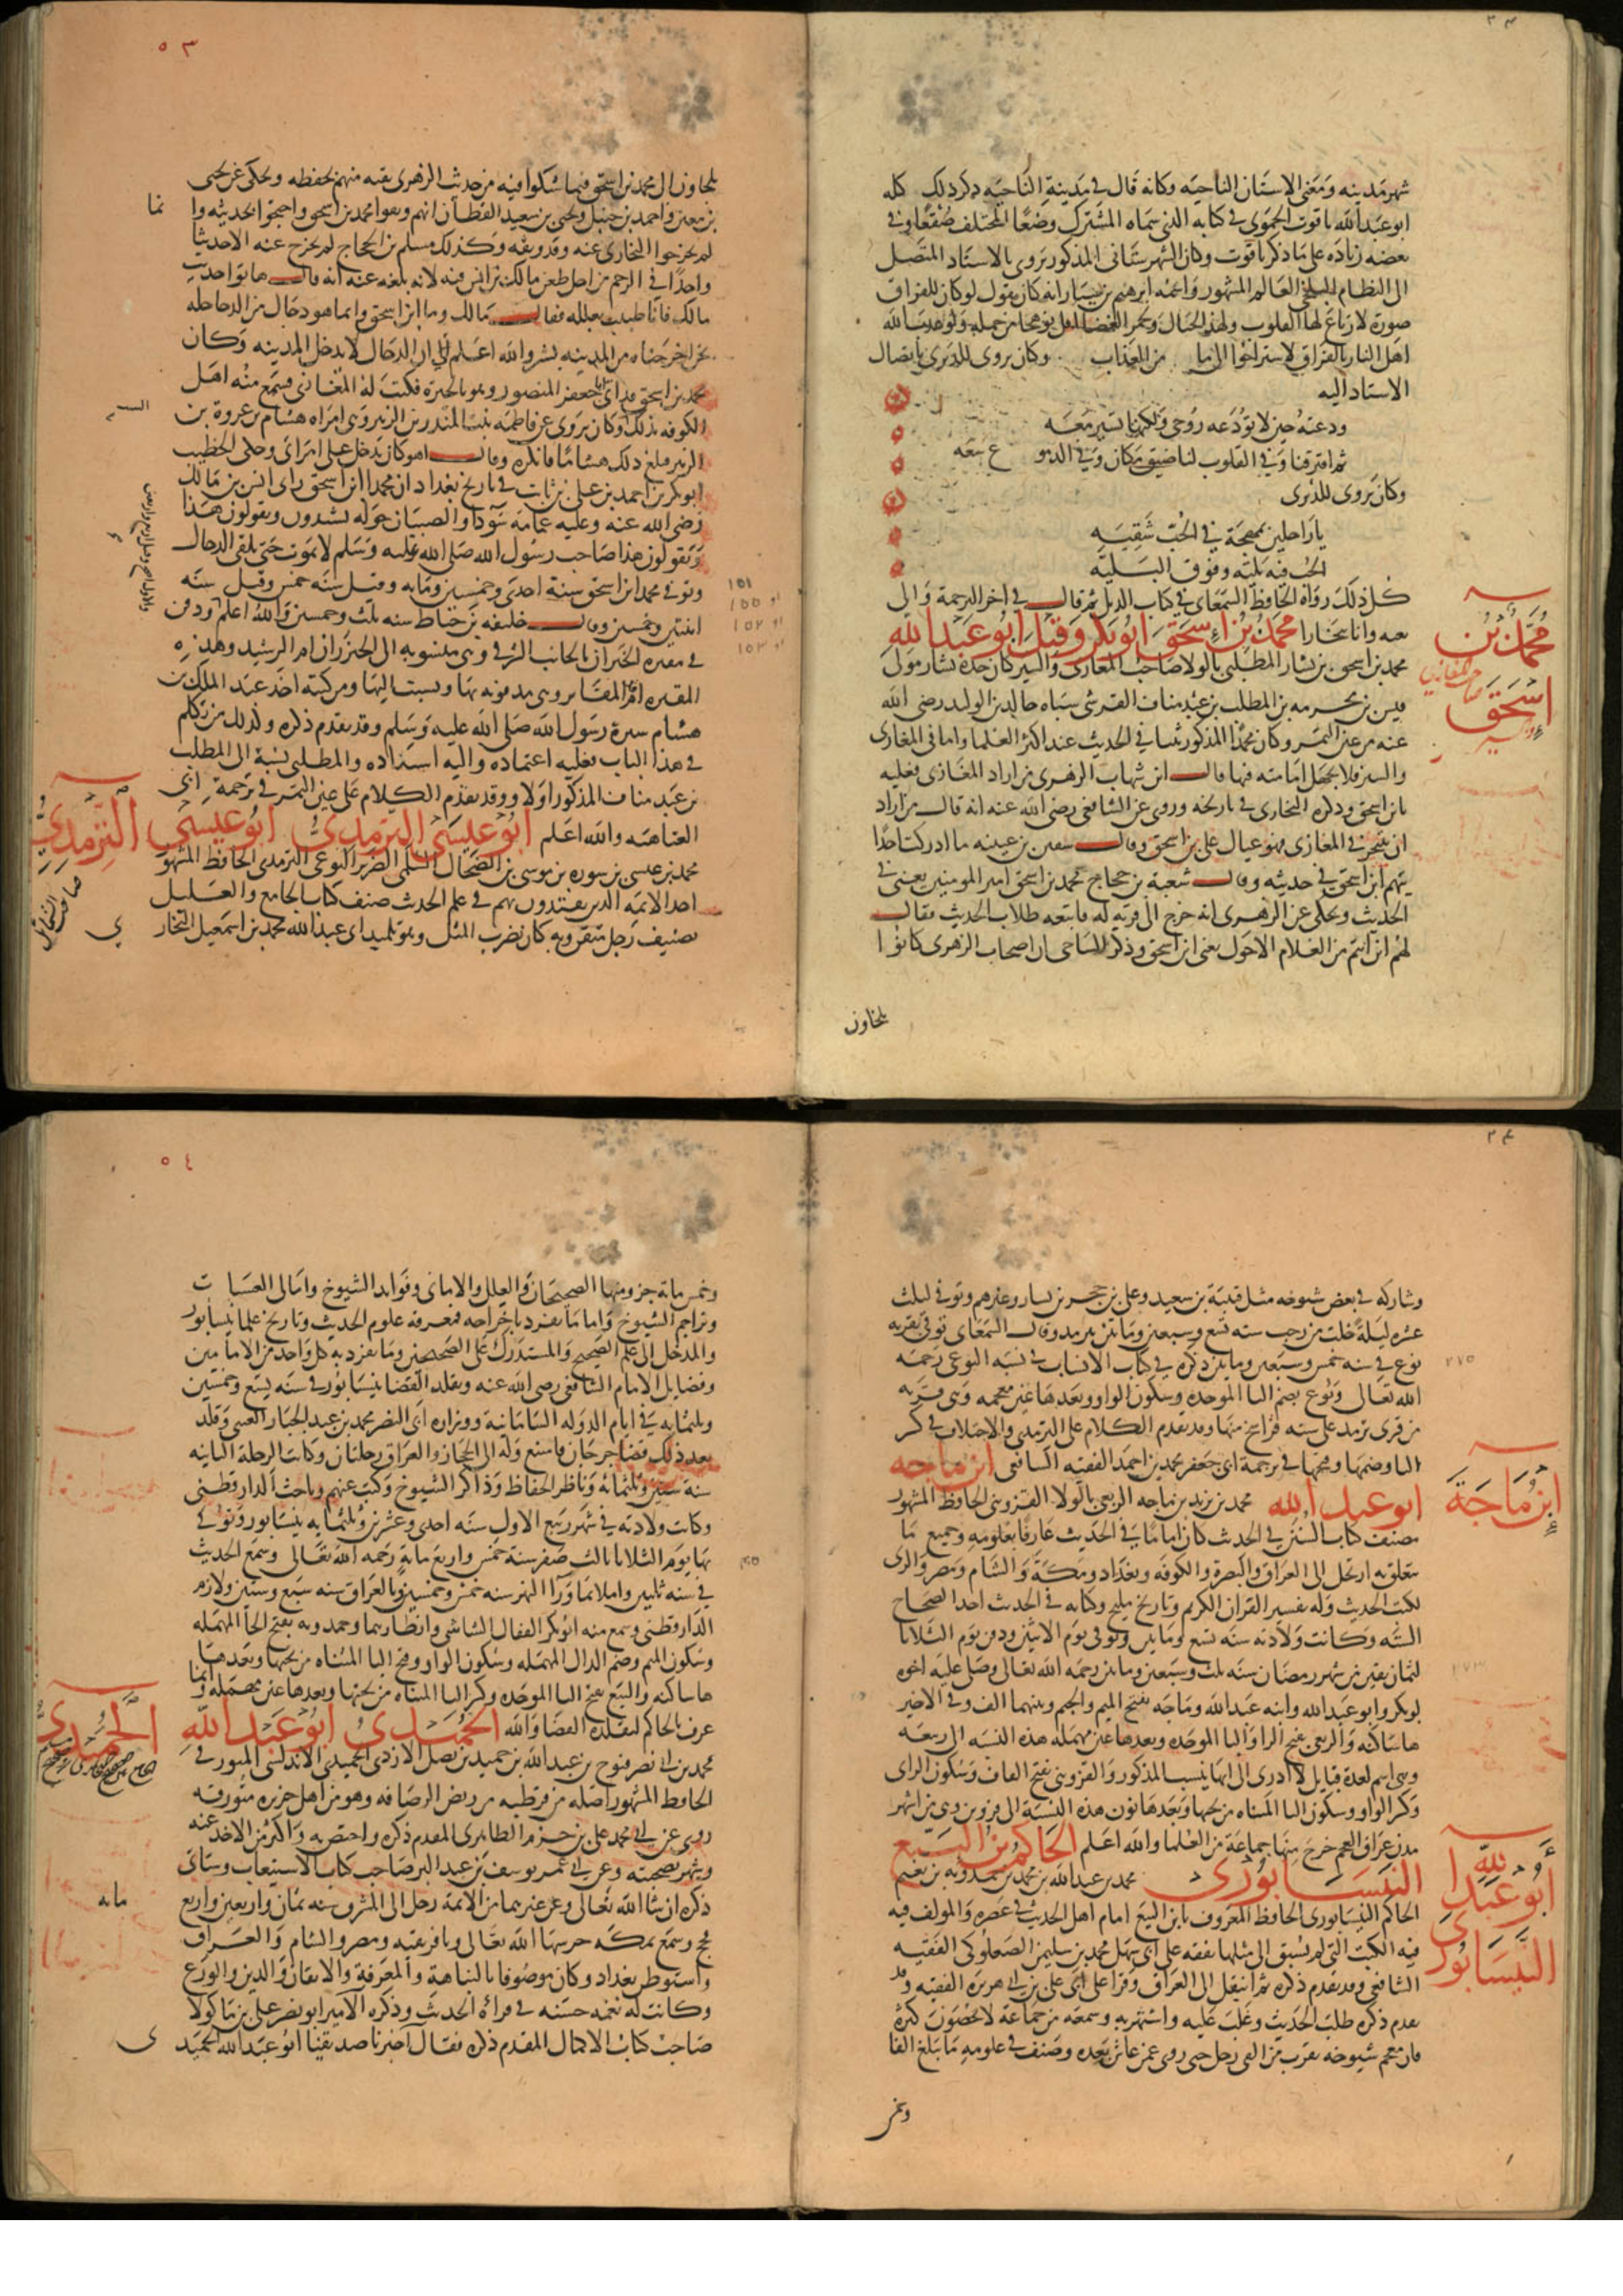 شهر مدينه ومعنى الاستان الناحيه وكانه قال في مدينة الناحيه ذكر ذلك كله
ابو عبد الله ياقوت الحموي في كتابه الذي سماه المشترك وضعا المختلف صقعا وفي
بعضه زياده على ما ذكر ياقوت وكان الشهرستاني المذكور يروى بالاسناد المتصل
الى النظام البلخي العالم المشهور واسمه ابرهيم بن سيار انه كان يقول لو كان للفراق
صورة لارتاع لها القلوب ولهذ الجبال ولجمر الغضا اقل توهجا من حمله ولو عذب الله
اهل النار بالفراق لاستراحوا الى ما من العذاب وكان يروى للدريدي باتصال
الاسناد اليه
ودعته حين لا تودعه روحي ولكنها تسير معه
ثم افترقنا وفي القلوب لنا ضيق مكان وفي الدمو ع سعه
وكان يروى للدريدي
يا راحلين بمهجة في الحب شقيه
الحب فيه بليه وفوق البليه
كل ذلك رواه الحافظ السمعاني في كتاب الذيل ثم قال في اخر الترجمة والى
نعيه وانا ببخارا محمد بن اسحق ابو بكر وقيل ابو عبد الله
محمد بن اسحق بن يسار المطلبي بالولا صاحب المغازي والسير كان جده يسار مولى
قيس بن مخرمه بن المطلب بن عبد مناف القرشي سباه خالد بن الوليد رضي الله
عنه من عين التمر وكان محمد المذكور ثبتا في الحديث عند اكثر العلما واما في المغازى
والسير فلا تجهل امامته فيها قال ابن شهاب الزهرى من اراد المغازى فعليه
بابن اسحق وذكره البخارى في تاريخه وروى عن الشافعى رضي الله عنه انه قال من اراد
ان يتبحر في المغازى فهو عيال على بن اسحق وقال سفين بن عيينه ما ادركت احدا
يتهم ابن اسحق في حديثه وقال شعبة بن حجاج محمد بن اسحق امير المومنين يعنى في
الحديث ويحكى عن الزهرى انه خرج الى قريه له فاتبعه طلاب الحديث فقال
لهم اين انتم من الغلام الاحول يعنى ابن اسحق وذكر الساجى ان اصحاب الزهرى كانوا
يلجاون
محمد بن
صاحب المغازي
اسحق
والسير
٥٣
يلجاون الى محمد بن اسحق فيما شكوا فيه من حديث الزهرى ثقه منهم بحفظه ويحكى عن يحيى
بن معين واحمد بن حنبل ويحيى بن سعيد القطان انهم وثقوا محمد بن اسحق واحتجوا بحديثه وا نما
لم يخرجوا البخارى عنه وقد وثقه وكذلك مسلم بن الحجاج لم يخرج عنه الا حديثا
واحدا في الرجم من اجل طعن مالك بن انس فيه لانه بلغه عنه انه قال هاتوا حديث
مالك فانا طبيب بعلله فقال مالك وما ابن اسحق وانما هو دجال من الدجاجله
نحن اخرجناه من المدينه يشير والله اعلم الى ان الدجال لا يدخل المدينه وكان
محمد بن اسحق قد اتى ابا جعفر المنصور وهو بالحيرة فكتب له المغازى فسمع منه اهل
الكوفه بذلك وكان يروى عن فاطمه بنت المنذر بن الزبير وهى امراه هشام بن عروة بن
الزبير فبلغ ذلك هشاما فانكره وقال اهو كان يدخل على امراتي وحكى الخطيب
ابو بكر بن احمد بن على بن ثابت في تاريخ بغداد ان محمدا ابن اسحق راى انس بن مالك
رضى الله عنه وعليه عمامة سودا والصبيان حوله يشتدون ويقولون هذا
ويقولون هذا صاحب رسول الله صلى الله عليه وسلم لا يموت حتى يلقى الدجال
وتوفي محمد ابن اسحق سنة احدى وخمسين ومايه وقيل سنه خمس وقيل سنه
اثنتين وخمسين وقال خليفه بن خياط سنه ثلث وخمسين والله اعلم ودفن
في مقبره الخيزران بالجانب الشرقي وهى منسوبه الى الخيزران ام الرشيد وهذه
المقبره اقدم المقابر وهى مدفونه بها ونسبت اليها ومن كتبه اخذ عبد الملك بن
هشام سيرة رسول الله صلى الله عليه وسلم وقد تقدم ذكره وكذلك من تكلم
في هذا الباب فعليه اعتماده واليه اسناده والمطلبى نسبة الى المطلب
بن عبد مناف المذكور اولا وقد تقدم الكلام على عين التمر في ترجمة ابي
العتاهيه والله اعلم ابو عيسى الترمذي ابو عيسى الترمذي
محمد بن عيسى بن سوره بن موسى بن الضحاك السلمى الضرير البوغى الترمذى الحافظ المشهور
احد الائمة الذين يقتدون بهم في علم الحديث صنف كتاب الجامع والعلل
تصنيف رجل متقن وبه كان يضرب المثل وهو تلميذ ابى عبد الله محمد بن اسمعيل البخار ي
١٥١
او ١٥٥
او ١٥٢
او ١٥٣
صاحب الشمائل
وشاركه في بعض شيوخه مثل قتيبة بن سعيد وعلى بن حجر بن يسار وغيرهم وتوفي لثلث
عشره ليلة خلت من رجب سنه تسع وسبعين ومايتين بترمذ وقال السمعانى توفى بقريه
بوغ في سنه خمس وسبعين ومايتين ذكره في كتاب الانساب في نسبة البوغى رحمه
الله تعالى وبوغ بضم البا الموحده وسكون الواو وبعدها غين معجمه وهى قرية
من قرى ترمذ على سته فراسخ منها وقد تقدم الكلام على الترمذى والاختلاف في كسر
التا وضمها وفتحها في ترجمة ابى جعفر محمد بن احمد الفقيه الشافعى ابن ماجه
ابو عبد الله محمد بن يزيد بن ماجه الربعى بالولا القزوينى الحافظ المشهور
مصنف كتاب السنن في الحديث كان اماما في الحديث عارفا بعلومه وجميع ما
يتعلق به ارتحل الى العراق والبصرة والكوفه وبغداد ومكة والشام ومصر والرى
لكتب الحديث وله تفسير القران الكريم وتاريخ مليح وكتابه في الحديث احد الصحاح
الستة وكانت ولادته سنه تسع ومايتين وتوفى يوم الاثنين ودفن يوم الثلاثا
لثمان بقين من شهر رمضان سنه ثلث وسبعين ومايتين رحمه الله تعالى وصلى عليه اخوه
ابو بكر وابو عبد الله وابنه عبد الله وماجه بفتح الميم والجيم وبينهما الف وفي الاخير
ها ساكنه والربعى بفتح الرا والبا الموحده وبعدها عين مهمله هذه النسبه الى ربيعه
وهى اسم لعدة قبايل لا ادرى الى ايها ينسب المذكور والقزوينى بفتح القاف وسكون الزاى
وكسر الواو وسكون اليا المثناه من تحتها وبعدها نون هذه النسبة الى قزوين وهى من اشهر
مدن عراق العجم خرج منها جماعة من العلما والله اعلم الحاكم بن البيع
النيسابوري محمد بن عبد الله بن محمد بن حمدويه بن نعيم
الحاكم النيسابورى الحافظ المعروف بابن البيع امام اهل الحديث في عصره والمولف فيه
فيه الكتب التى لم يسبق الى مثلها تفقه على ابى سهل محمد بن سليمن الصعلوكى الفقيه
الشافعى وقد تقدم ذكره ثم انتقل الى العراق وقرا على ابى على بن ابى هريره الفقيه وقد
تقدم ذكره طلب الحديث وغلب عليه واشتهر به وسمعه من جماعة لا يحصون كثرة
فان معجم شيوخه يقرب من الفي رجل حتى روى عمن عاش بعده وصنف في علومه ما يبلغ الفا
وخمس
ابن ماجة
ابو عبد الله
النيسابوري
٢٧٥
٢٧٣
٥٤
وخمس ماية جزو منها الصحيحان والعلل والامالى وفوايد الشيوخ وامالى العشيا ت
وتراجم الشيوخ واما ما تفرد باخراجه فمعرفة علوم الحديث وتاريخ علما نيسابور
والمدخل الى علم الصحيح والمستدرك على الصحيحين وما تفرد به كل واحد من الامامين
وفضايل الامام الشافعى رضى الله عنه وتقلد القضا بنيسابور في سنه تسع وخمسين
وثلثمايه في ايام الدوله السامانية ووزاره ابى النضر محمد بن عبد الجبار العتبى وقلد
بعد ذلك قضا جرجان فامتنع وله الى الحجاز والعراق رحلتان وكانت الرحلة الثانيه
سنة ستين وثلثمائة وناظر الحفاظ وذاكر الشيوخ وكتب عنهم وباحث الدارقطنى
وكانت ولادته في شهر ربيع الاول سنه احدى وعشرين وثلثمايه بنيسابور وتوفي
بها يوم الثلاثا ثالث صفر سنة خمس واربع ماية رحمه الله تعالى وسمع الحديث
في سنه ثلثين واملا بما ورا النهر سنه خمس وخمسين وبالعراق سنه سبع وستين ولازمه
الدارقطنى وسمع منه ابو بكر القفال الشاشى وانظارهما وحمدويه بفتح الحا المهمله
وسكون الميم وضم الدال المهمله وسكون الواو وفتح اليا المثناه من تحتها وبعدها
ها ساكنه والبيع بفتح البا الموحده وكسر اليا المثناه من تحتها وبعدها عين مهمله وانما
عرف بالحاكم لتقلده القضا والله الحميدي ابو عبد الله
محمد بن ابى نصر فتوح بن عبد الله بن حميد بن يصل الازدى الحميدى الاندلسى الميورقى
الحافظ المشهور اصله من قرطبه من ربض الرصافه وهو من اهل جزيره ميورقه
روى عن ابى محمد على بن حزم الظاهرى المقدم ذكره واختص به واكثر من الاخذ عنه
وشهر بصحبته وعن ابى عمر يوسف بن عبد البر صاحب كتاب الاستيعاب وسياتى
ذكره ان شا الله تعالى وعن غيرهما من الائمة رحل الى المشرق سنه ثمان واربعين واربع مايه
فحج وسمع بمكه حرسها الله تعالى وبافريقيه ومصر والشام والعراق
واستوطن بغداد وكان موصوفا بالنباهة والمعرفة والاتقان والدين والورع
وكانت له نغمه حسنه في قراة الحديث وذكره الامير ابو نصر على بن ماكولا
صاحب كتاب الاكمال المقدم ذكره فقال اخبرنا صديقنا ابو عبد الله الحميد ى
الحميدي